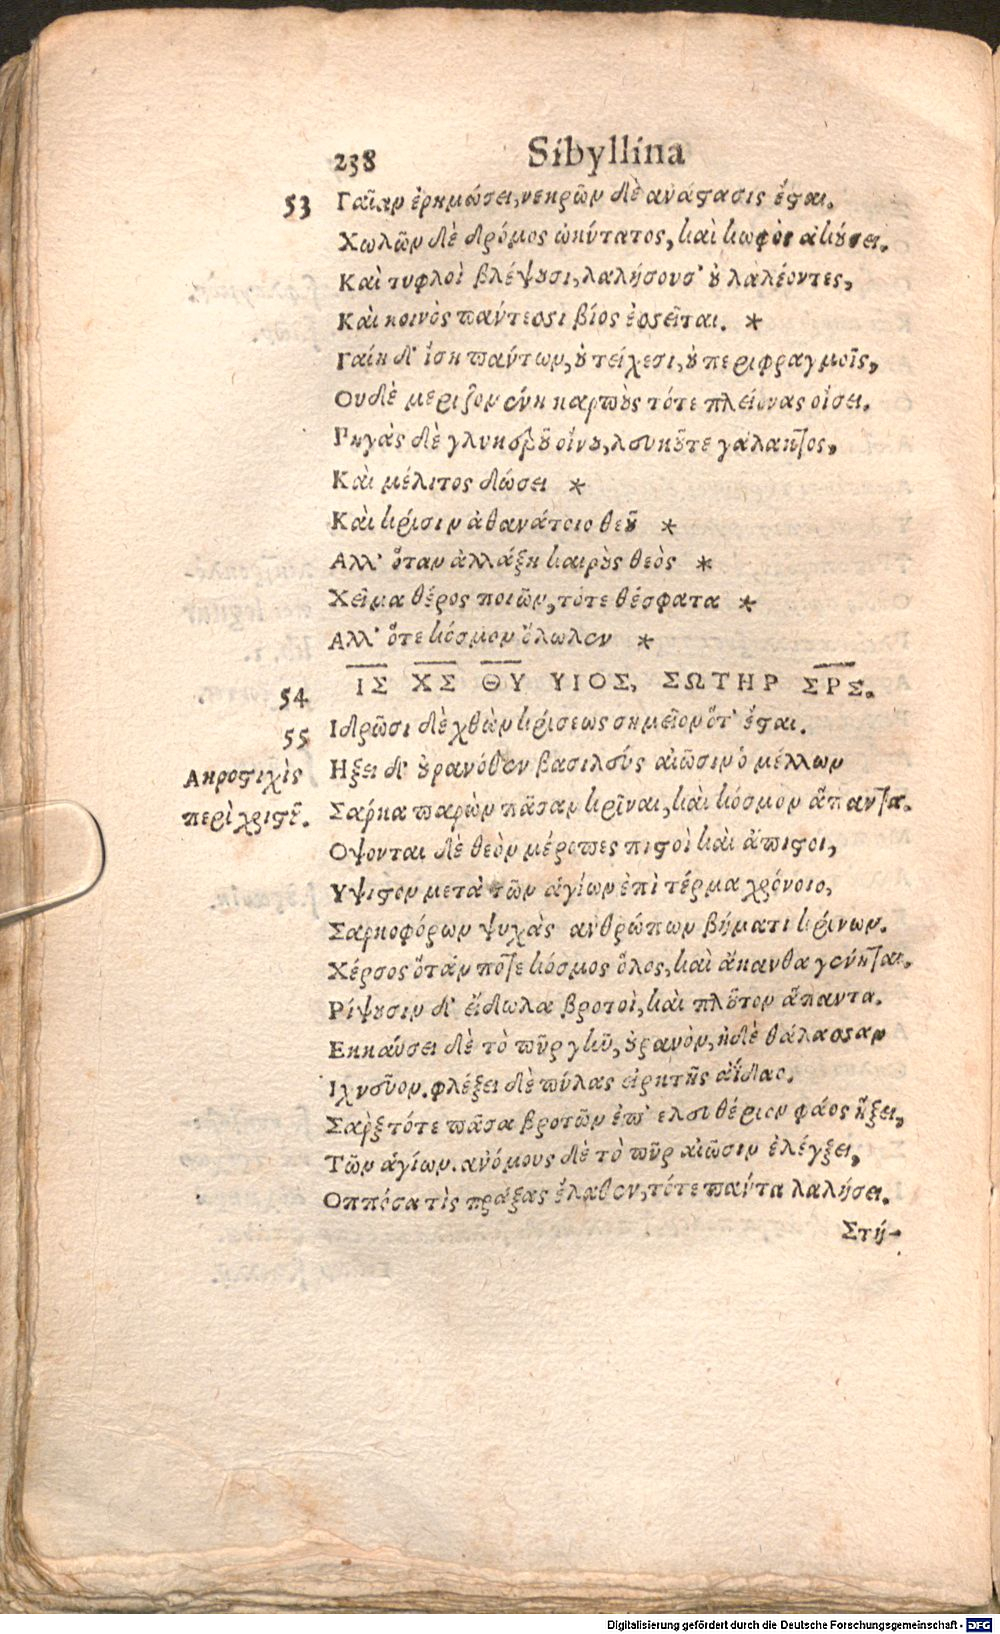 238 Sibyllina
53 Γαῖαν ἐρημώσει, νεκρῶν δὲ ανάστασις ἔσται.
Χωλῶν δὲ δρόμος ὠκύτατος, καὶ κωφὸς ἀκούσει.
Καὶ τυφλοὶ βλέψουσι, λαλήσουσ' οὐ λαλέοντες,
Καὶ κοινὸς πάντεσσι βίος ἐσσεῖται. *
Γαίη δ' ἴση πάντων, οὐ τείχεσι, οὐ περιφραγμοῖς,
Ουδὲ μεριζομένη καρποὺς τότε πλείονας οἴσει.
Πηγὰς δὲ γλυκεροῦ οἴνου, λευκοῦ τε γάλακτος,
Καὶ μέλιτος δώσει *
Καὶ κρίσιν ἀθανάτοιο θεοῦ *
Αλλ' ὅταν ἀλλάξη καιροὺς θεὸς *
Χεῖμα θέρος ποιῶν, τότε θέσφατα *
Αλλ' ὅτε κόσμον ὄλωλεν *
54 ΙΣ ΧΣ ΘΥ ΥΙΟΣ, ΣΩΤΗΡ ΣΡΣ.
55 Ιδρῶσι δὲ χθὼν κρίσεως σημεῖον ὅτ' ἔσται.
Ακροστιχὶς Ηξει δ' οὐρανόθεν βασιλεύς αἰῶσιν ὁ μέλλων
περὶ χριστοῦ. Σαρκα παρὼν πᾶσαν κρῖναι, καὶ κόσμον ἅπαντα.
Οψονται δὲ θεὸν μέροπες πιστοὶ καὶ ἄπιστοι,
Υψιστον μετὰ τῶν ἁγίων ἐπὶ τέρμα χρόνοιο,
Σαρκοφόρων ψυχὰς ανθρώπων βήματι κρίνων.
Χέρσος ὅτάν ποτε κόσμος ὅλος, καὶ ἄκανθα γένηται.
Ρίψουσιν δ' εἴδωλα βροτοὶ, καὶ πλοῦτον ἅπαντα.
Εκκαύσει δὲ τὸ πῦρ γῆν, οὐρανὸν, ἠδὲ θάλασσαν
Ιχνεῦον. φλέξει δὲ πύλας εἱρκτῆς ἀΐδαο.
Σαρξ τότε πᾶσα βροτῶν ἐπ' ελευθέριον φάος ἥξει,
Τῶν ἁγίων. ανόμους δὲ τὸ πῦρ αἰῶσιν ἐλέγξει,
Οππόσα τὶς πράξας ἔλαθεν, τότε πάντα λαλήσει.
Στή-
Digitalisierung gefördert durch die Deutsche Forschungsgemeinschaft - DFG